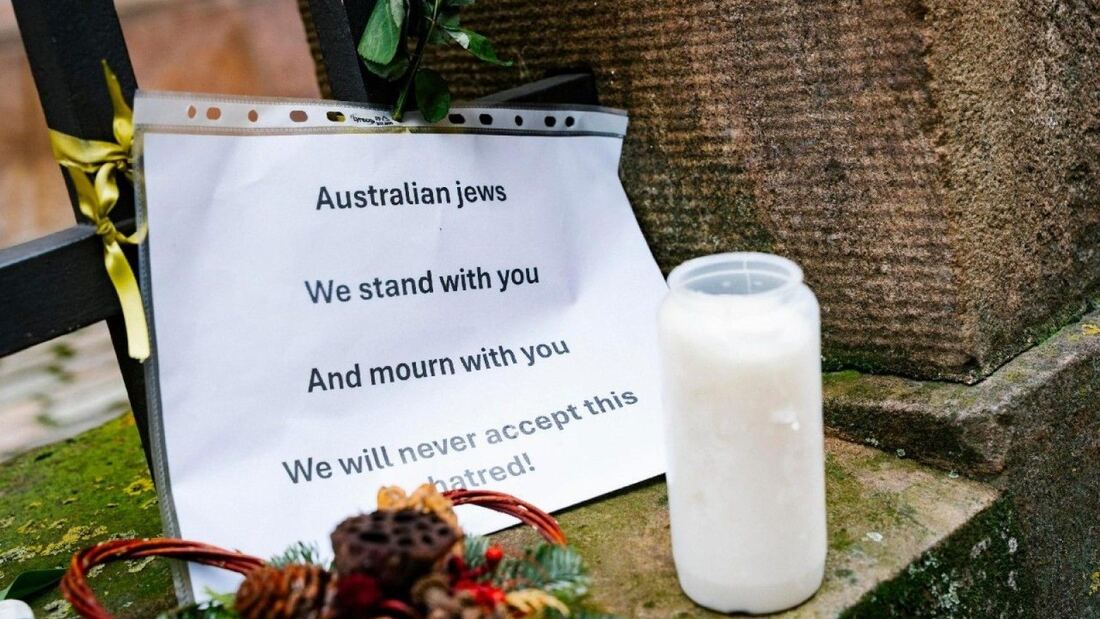 Australian jews
We stand with you
And mourn with you
We will never accept this
hatred!